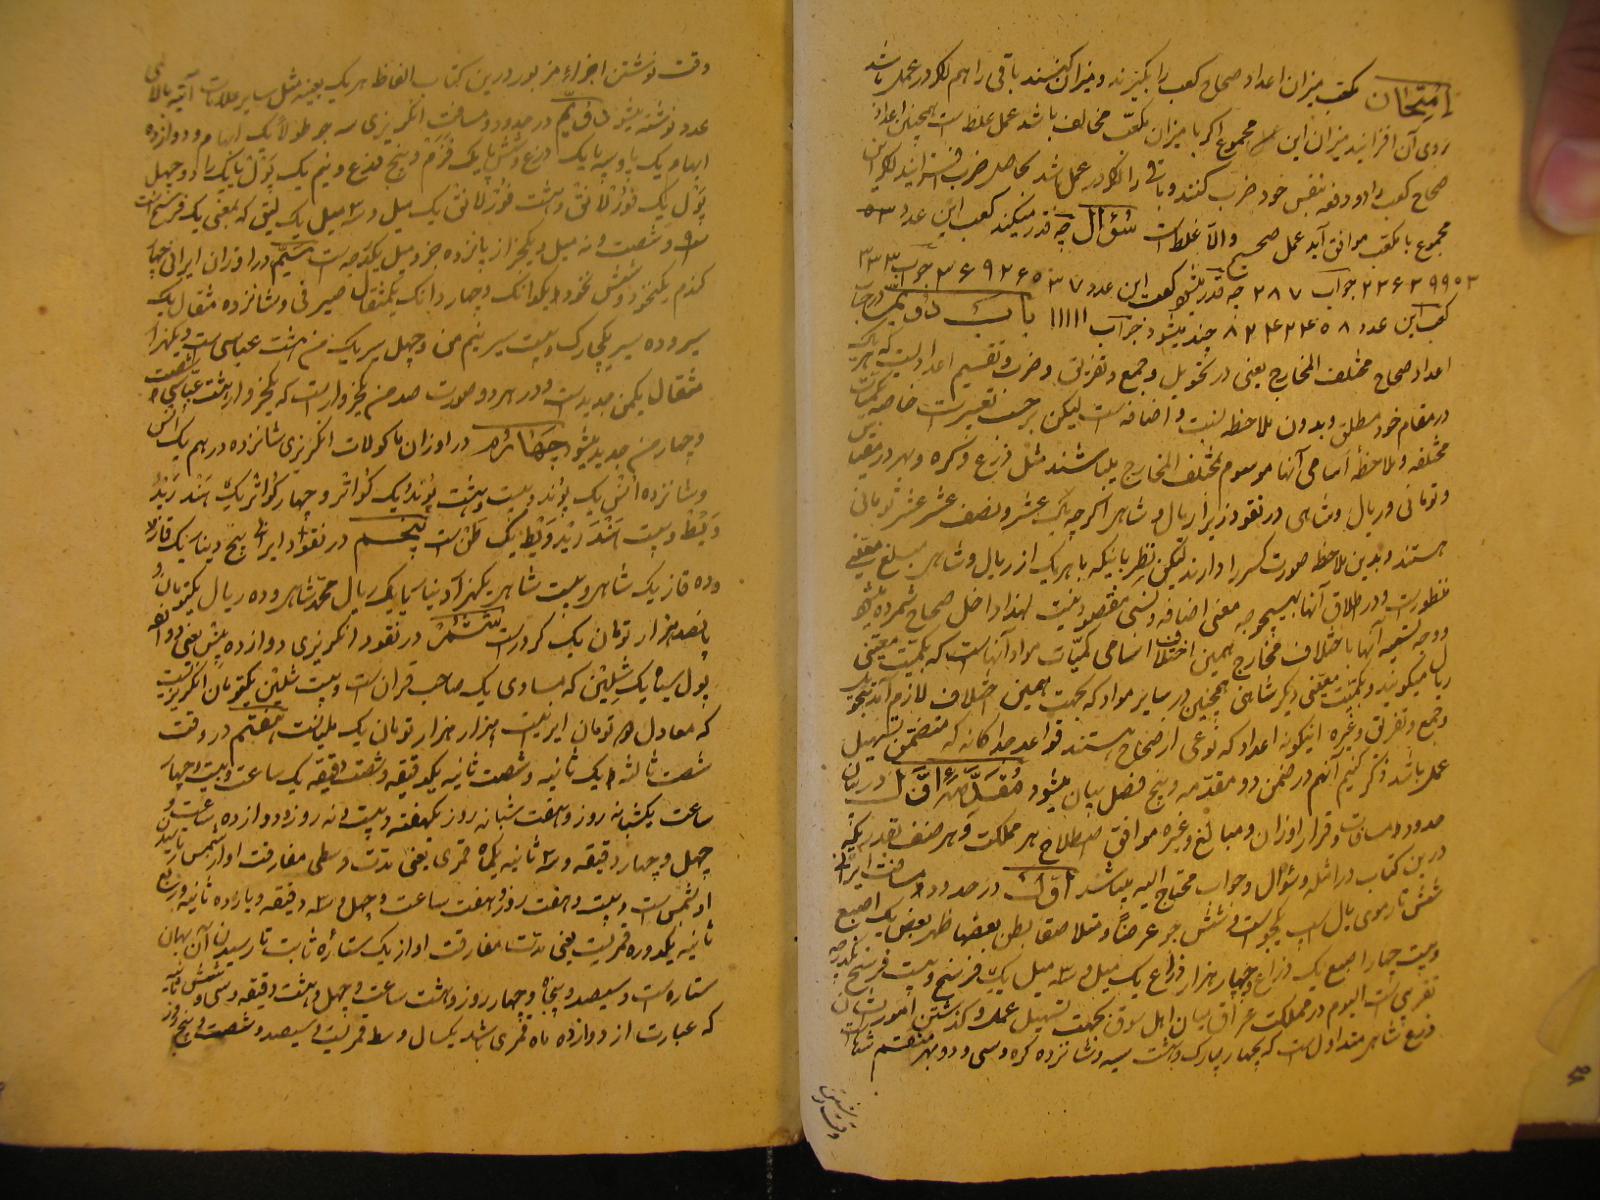 امتحان مکعب میزان اعداد صحاح کعب را بگیرند و میزان باقی را هم اگر در عمل باشد
روی آن افزانید میزان این مجموع اگر با میزان مکعب مخالف باشد عمل غلط است همچنین اعداد
صحاح کعب را دو دفعه بنفس خود ضرب کنند و باقی را اگر در عمل باشد بحاصل ضرب افزانید اگر این
مجموع با مکعب موافق آید عمل صحیح والا غلط است سؤال چه قدر میکند کعب این عدد
جواب ۲۸۷ چه قدر میشود کعب این عدد جواب ۳۳۳
کعب این عدد چند میشود جواب ۱۱۱۱۱ باب دویم در حساب
اعداد صحاح مختلف المخارج یعنی در تحویل و جمع و تفریق و ضرب و تقسیم اعدادیست که هر یک
در مقام خود مطلق و بدون ملاحظه نسبت و اضافه است لیکن بر حسب تغییرات خاصه
مختلفه و ملاحظه اسامی آنها موسوم بمختلف المخارج میباشند مثل ذرع و کره و بهر در
و تومانی و ریال و شاهی در نقود زیرا ریال و شاهی اگر چه یک عشر و نصف عشر عشر تومانی
هستند و بدین ملاحظه صورت کسر را دارند لیکن نظر باینکه با هر یک از ریال و شاهی مبلغ معینی
منظور است و در اطلاق آنها بهیچوجه معنی اضافه و نسبی مقصود نیست لهذا داخل صحاح شمرده میشود
و وجه تسمیه آنها باختلاف مخارج همین اختلاف اسامی کمیات مواد آنهاست که بکمیت معینی
ریال میگویند و بکمیت معینی دیگر شاهی همچنین در سایر مواد که بجهت همین اختلاف لازم آمد
و جمع و تفریق و غیره اینگونه اعداد که نوعی از صحاح هستند قواعد جداگانه که متضمن تسهیل
عمل باشد ذکر کنیم آنهم در ضمن دو مقدمه و پنج فصل بیان میشود مقدمه اول در بیان
حدود و مسافات و قرار اوزان و مبالغ و غیره موافق اصطلاح هر مملکت و هر صنف بقدریکه
درین کتاب در امثله و سؤال و جواب محتاج الیه میباشد اول در حدود و مسافت ایرانی
شش تار موی یال اسب یکجو است و شش جو عرضا و متلاصقا بطن بعضها ظهر بعض یک اصبع
و بیست چهار اصبع یک ذراع و چهار هزار ذراع یک میل و ۳ میل یک فرسخ و بیست فرسخ یکدرجه
تقریبی است الیوم در مملکت عراق میان اهل سوق بجهت تسهیل عمل و گذشتن امورات
ذرع شاهی متداول است که بچهار چارک و هشت سیه و شانزده کره و سی و دو بهر منقسم شده است
وقت نوشتن
وقت نوشتن اجزاء مزبور درین کتاب الفاظ هر یک بعینه مثل سایر علامات آتیه بالای
عدد نوشته میشود دویم در حدود و مسافت انگریزی سه جو طولا یک ابهام و دوازده
ابهام یک پا و سه پا یک ذرع و شش پا یک فزم و پنج ذرع و نیم یک پول یا یک راد و چهل
پول یک فورلانق و هشت فورلانق یک میل و ۳ میل یک لیق که بمعنی یک فرسخ است
و شصت و نه میل و یکجزء از پانزده جزء میل یکدرجه است سیم در اوزان ایرانی چهار
گندم یکنخود و شش نخود یکدانک و چهار دانک یکمثقال صیرفی و شانزده مثقال یک
سیر و ده سیر یکچارک و بیست سیر نیم من و چهل سیر یک من هشت عباسی است و یکهزار
مثقال یکمن جدید است و در هر دو صورت صد من یکخروار است که یکخروار هشت عباسی
و چهار من جدید میشود چهارم در اوزان ماکولات انگریزی شانزده درهم یک انس
و شانزده انس یک پوند و بیست و هشت پوند یک کواتر و چهار کواتر یک هند رید
و یط و بیست هند رید ویط یک طن است پنجم در نقود ایرانی پنج دینار یک قاز
و ده قاز یک شاهی و بیست شاهی یکهزار دینار یا یک ریال محمد شاهی و ده ریال یکتومان و
پانصد هزار تومان یک کرور است ششم در نقود انگریزی دوازده پنس یعنی دوازده
پول سیاه یک شلین که مساوی یک صاحب قران است و بیست شلین یکتومان انگریز است
که معادل تومان ایرانیست هزار هزار تومان یک ملیانست هفتم در وقت
شصت ثالثه یک ثانیه و شصت ثانیه یکدقیقه و شصت دقیقه یک ساعت و بیست و چهار
ساعت یکشبانه روز و هفت شبانه روز یکهفته و بیست و نه روز و دوازده ساعت و
چهل و چهار دقیقه و ۳ ثانیه یکماه قمری یعنی مدت وسطی مفارقت او از شمس تا رسیدن
او بشمس است و بیست و هفت روز و هفت ساعت و چهل و ۳ دقیقه و یازده ثانیه و ربع
ثانیه یکدوره قمریست یعنی مدت مفارقت او از یک ستاره ثابت تا رسیدن آن بهمان
ستاره است و سیصد و پنجاه و چهار روز و هشت ساعت و چهل و هشت دقیقه و سی و شش ثانیه
که عبارت از دوازده ماه قمری باشد یکسال وسط قمریست و سیصد و شصت و پنج روز